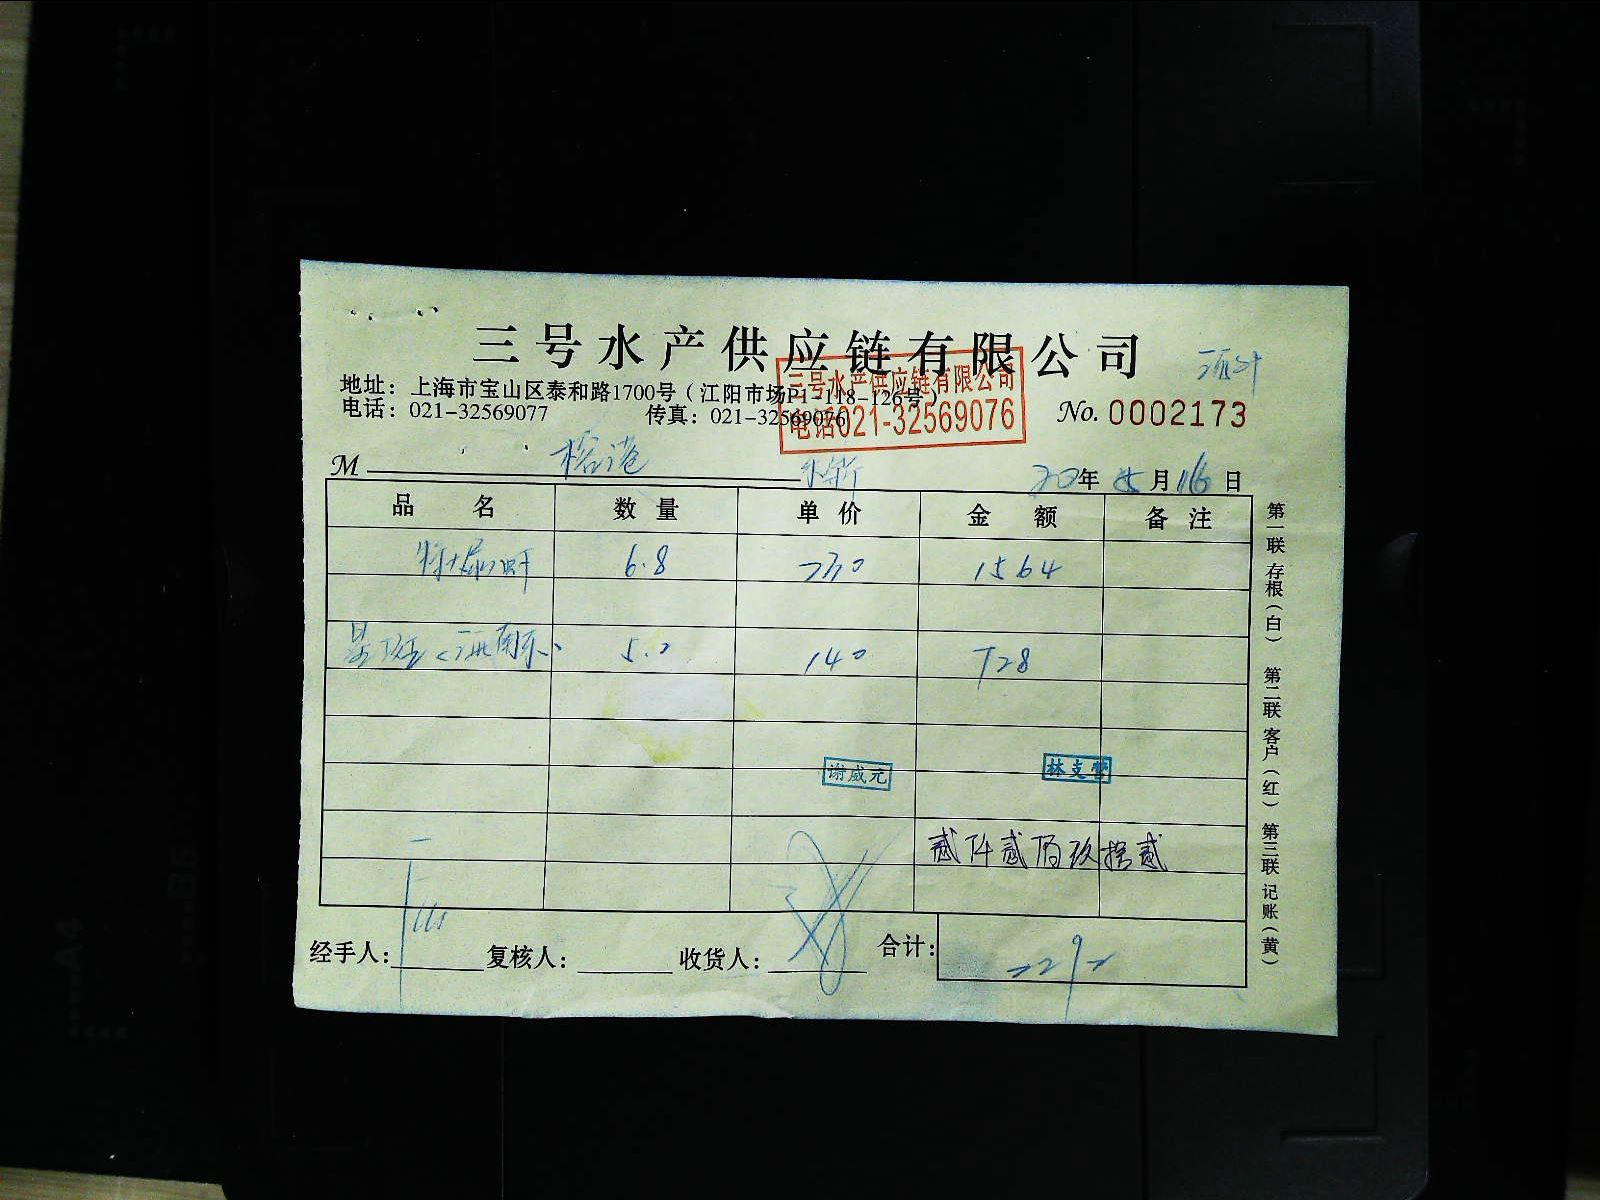 三号水产供应链有限公司
地址：上海市宝山区泰和路1700号（江阳市场P1-118-126号）
电话：021-32569077 传真：021-32569076
三号水产供应链有限公司
电话021-32569076
No. 0002173
M 榕港 20年 05月16日
品名 数量 单价 金额 备注
6.8 230 1564
5.2 140 728
谢威元 林支营
贰仟贰佰玖拾贰
经手人： 复核人： 收货人： 合计： 2292
第一联 存根（白） 第二联 客户（红） 第三联 记账（黄）